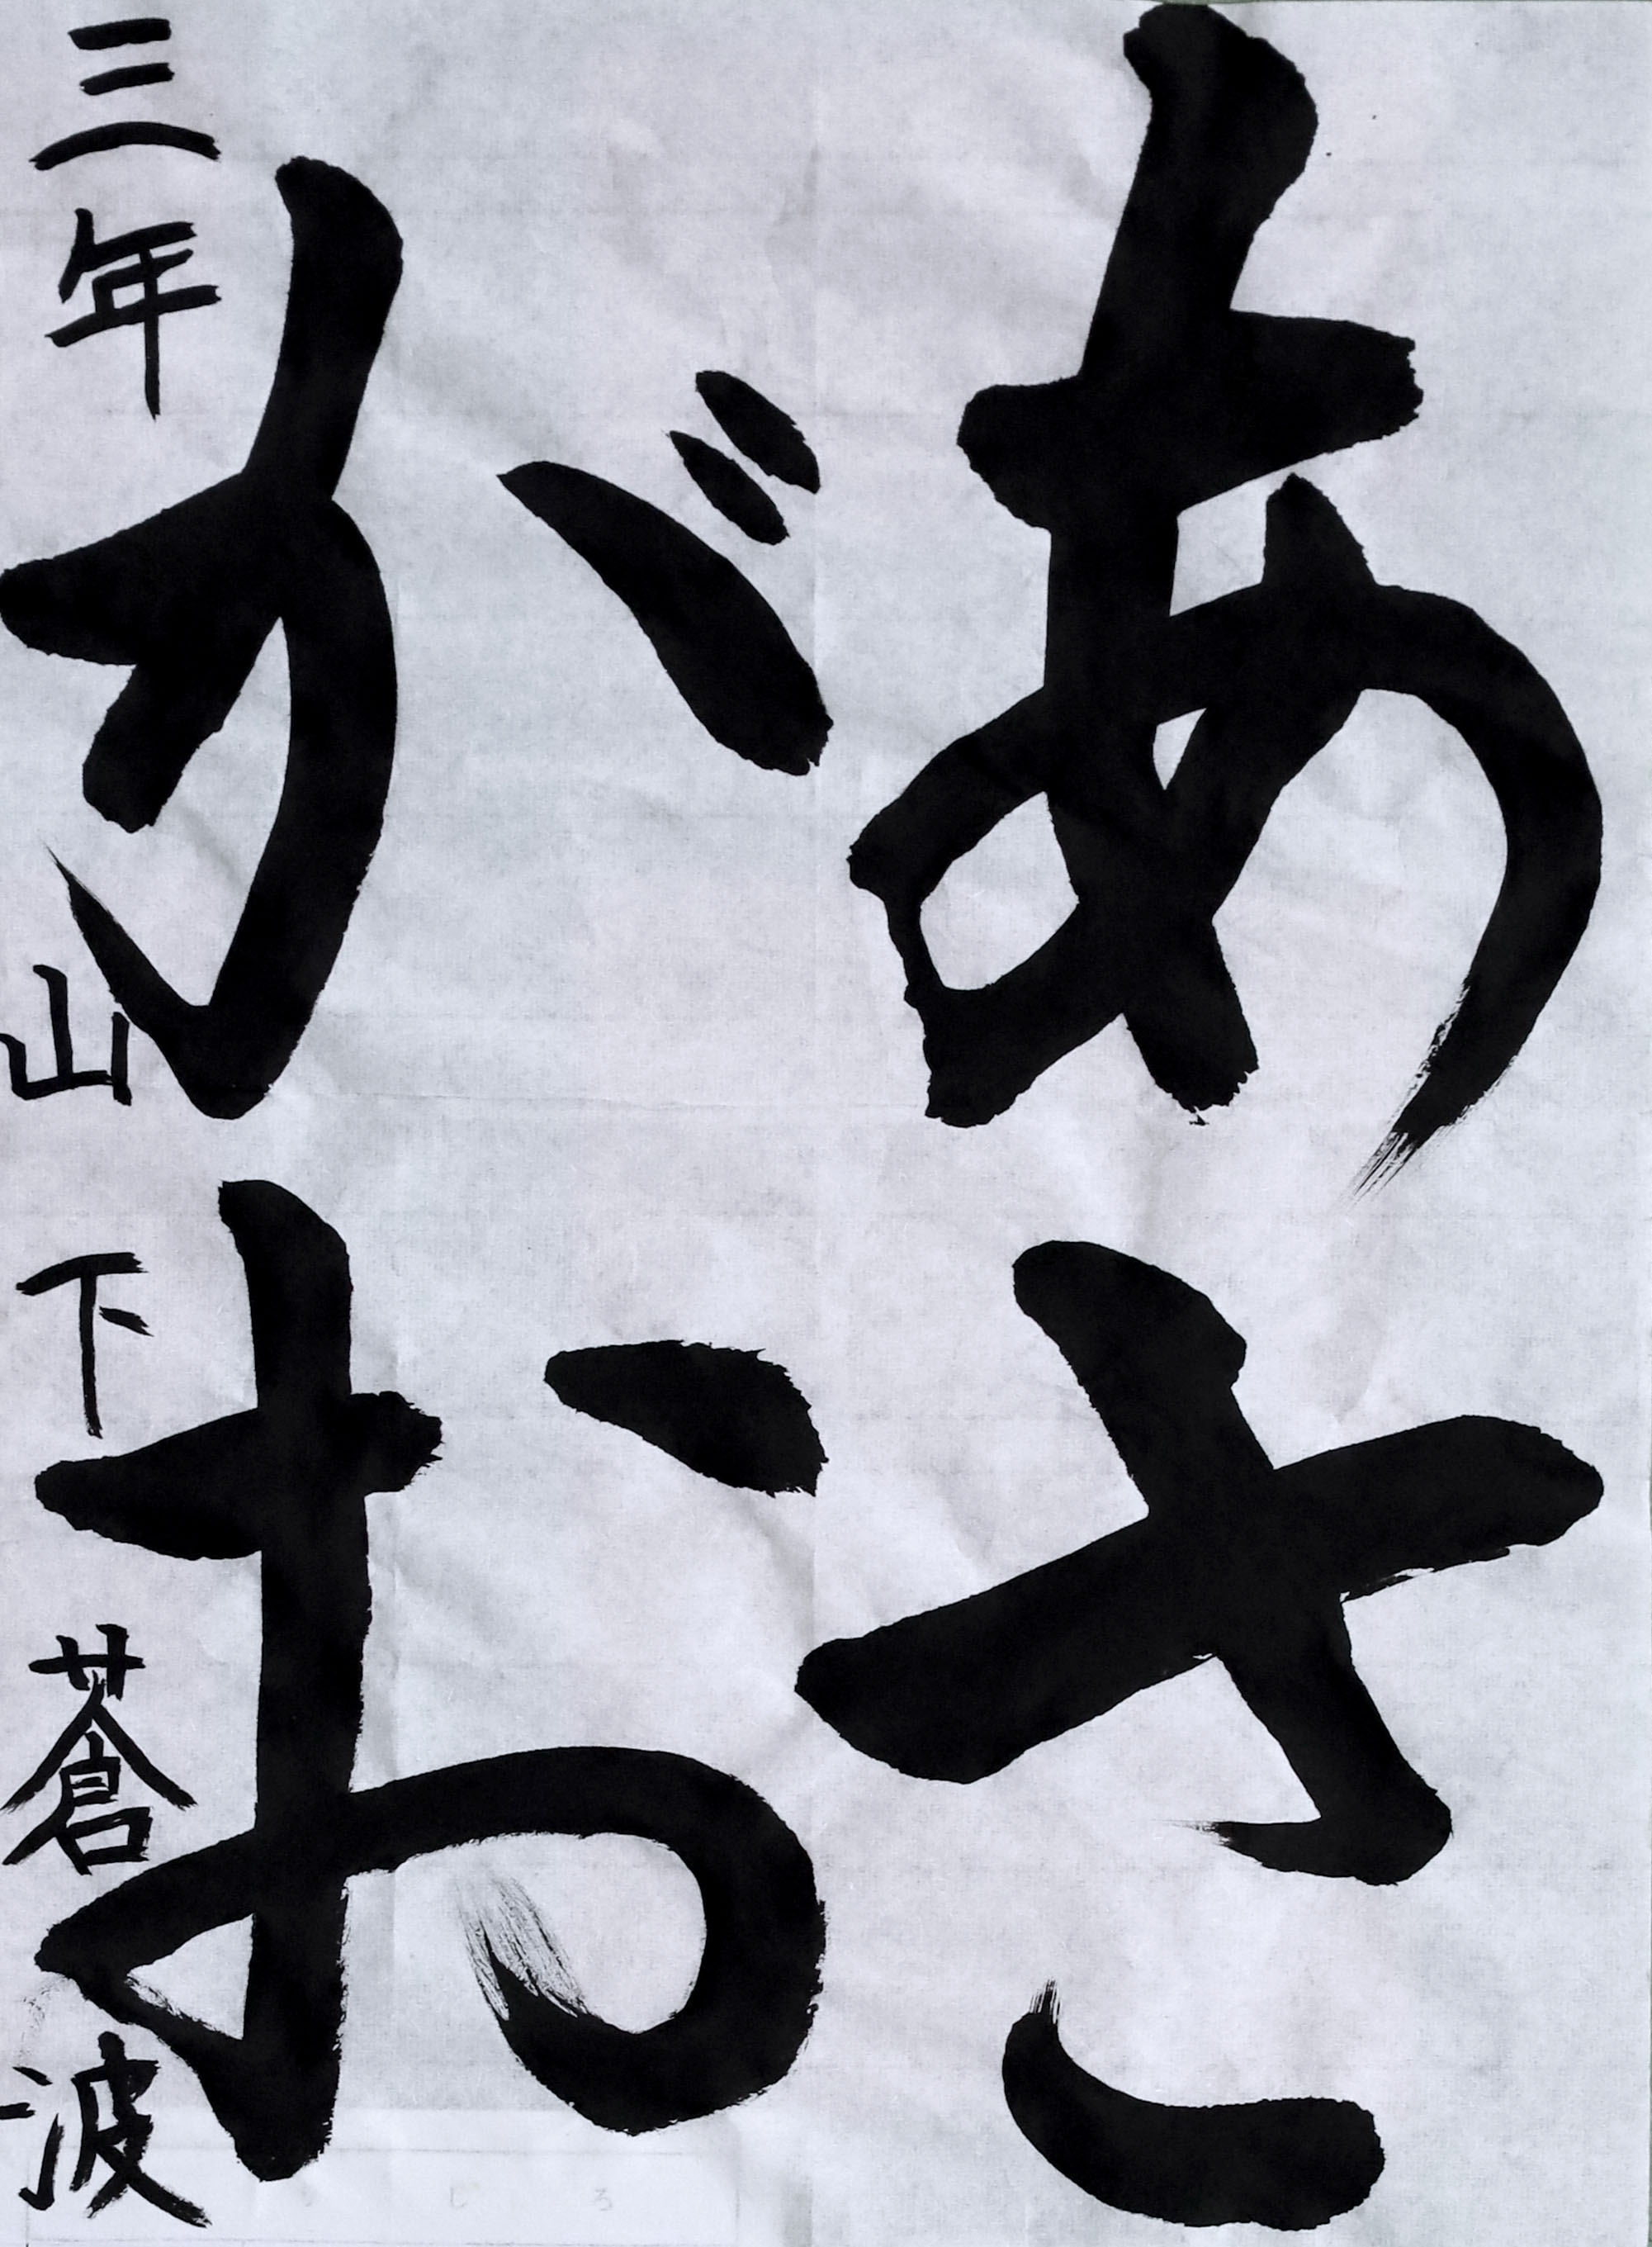 あさ
がお
三年 山下蒼波